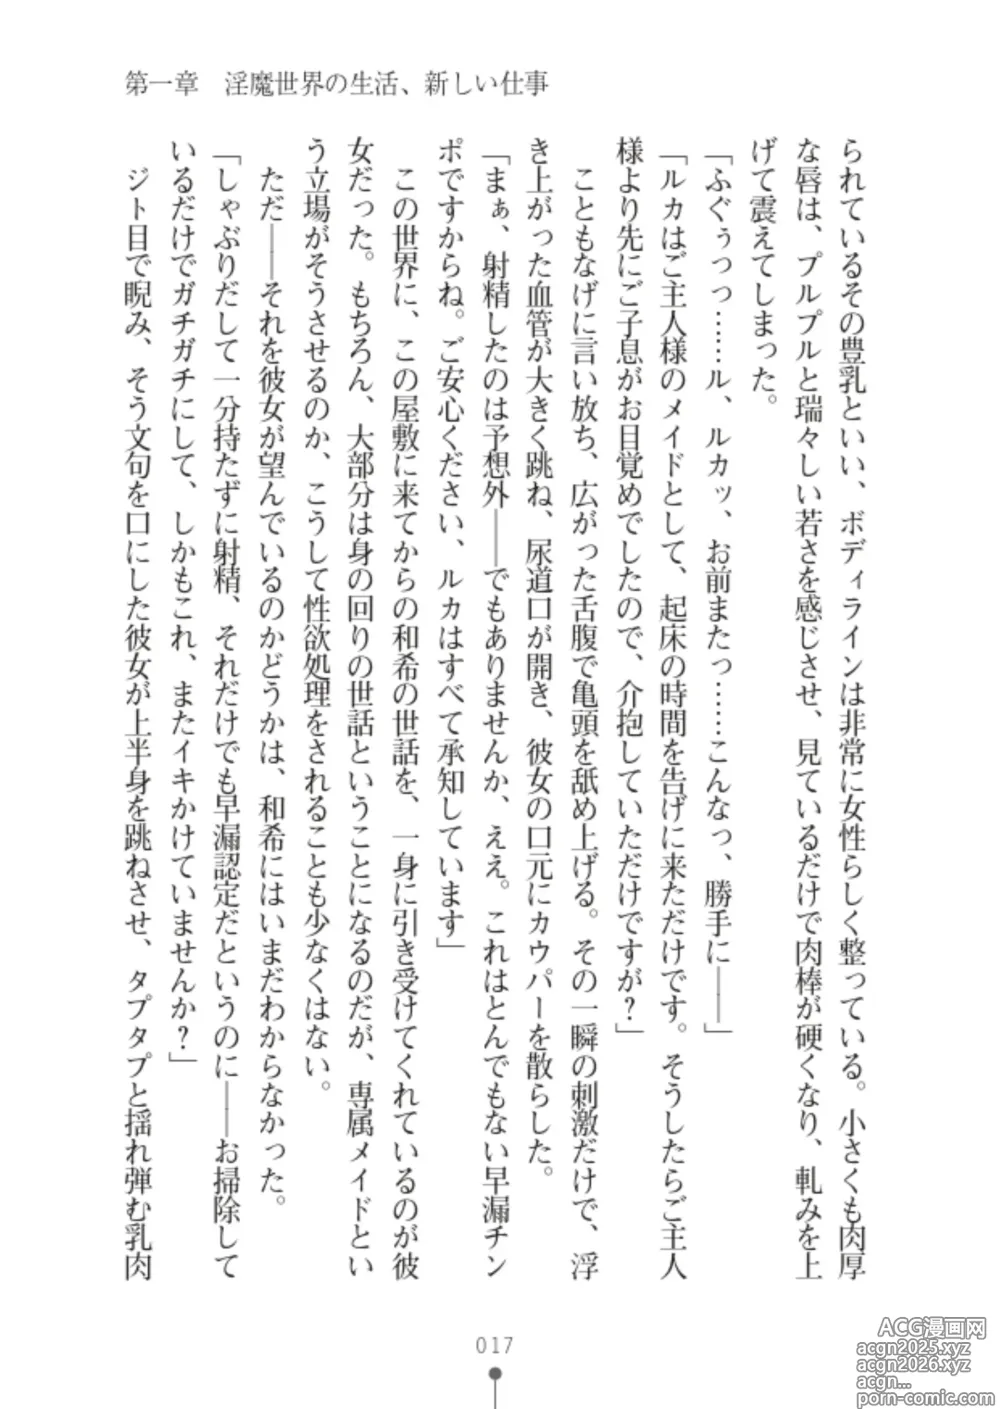 第一章　淫魔世界の生活、新しい仕事
られているその豊乳といい、ボディラインは非常に女性らしく整っている。小さくも肉厚
な唇は、プルプルと瑞々しい若さを感じさせ、見ているだけで肉棒が硬くなり、軋みを上
げて震えてしまった。
「ふぐぅっっ……ル、ルカッ、お前またっ……こんなっ、勝手に――」
「ルカはご主人様のメイドとして、起床の時間を告げに来ただけです。そうしたらご主人
様より先にご子息がお目覚めでしたので、介抱していただけですが？」
　こともなげに言い放ち、広がった舌腹で亀頭を舐め上げる。その一瞬の刺激だけで、浮
き上がった血管が大きく跳ね、尿道口が開き、彼女の口元にカウパーを散らした。
「まぁ、射精したのは予想外――でもありませんか、ええ。これはとんでもない早漏チン
ポですからね。ご安心ください、ルカはすべて承知しています」
　この世界に、この屋敷に来てからの和希の世話を、一身に引き受けてくれているのが彼
女だった。もちろん、大部分は身の回りの世話ということになるのだが、専属メイドとい
う立場がそうさせるのか、こうして性欲処理をされることも少なくはない。
　ただ――それを彼女が望んでいるのかどうかは、和希にはいまだわからなかった。
「しゃぶりだして一分持たずに射精、それだけでも早漏認定だというのに――お掃除して
いるだけでガチガチにして、しかもこれ、またイキかけていませんか？」
　ジト目で睨み、そう文句を口にした彼女が上半身を跳ねさせ、タプタプと揺れ弾む乳肉
017
ACG漫画网
acgn2025.xyz
acgn2026.xyz
acgn...
porn-comic.com